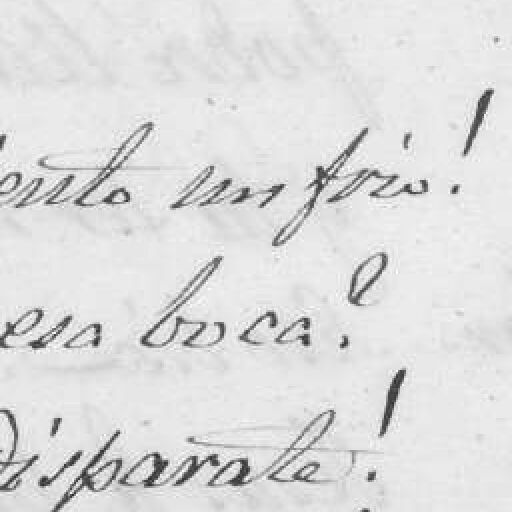 iento un frio!
esa boca?
disparate!